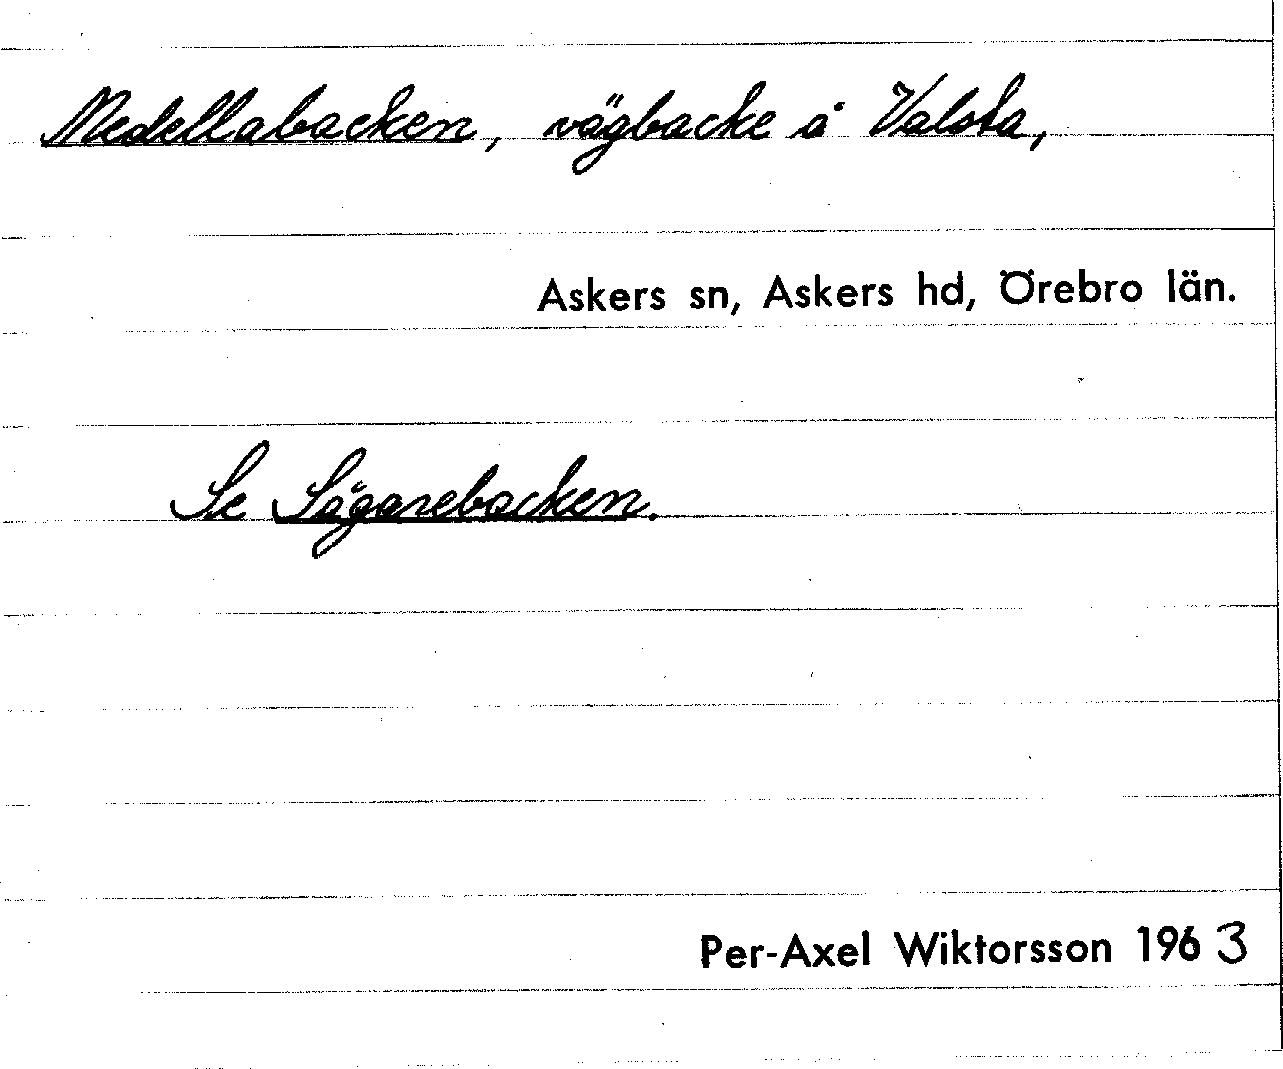 Medellabacken, vägbacke å Valsta,
Askers sn, Askers hd, Örebro län.
Se Sågarebacken.
Per-Axel Wiktorsson 1963